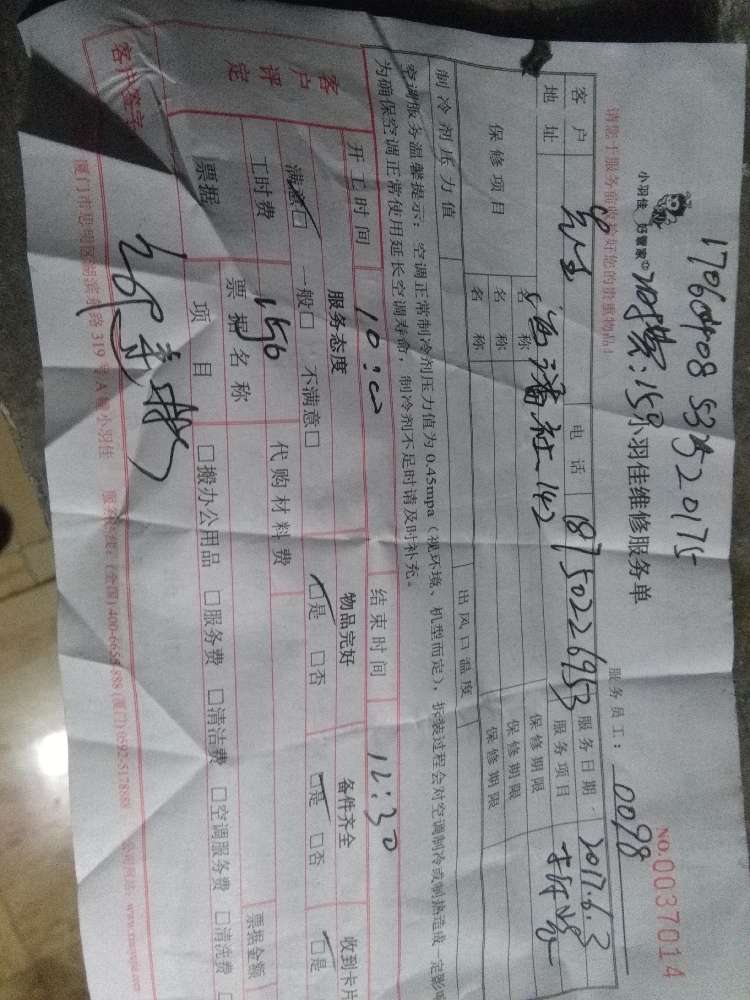 17060408 53752 0175
请您于服务前收检好您的贵重物品!
小羽佳 好管家
小羽佳维修服务单
服务员工: 0098
NO.0037014
客户
电话 18750226953
服务日期 2017.6.3
地址
服务项目
保修项目
名称
保修期限
名称
保修期限
名称
保修期限
制冷剂压力值
出风口温度
空调服务温馨提示: 空调正常制冷剂压力值为 0.45mpa (视环境、机型而定), 拆装过程会对空调制冷或制热造成一定影响
为确保空调正常使用延长空调寿命, 制冷剂不足时请及时补充。
开工时间 10:00
结束时间 12:30
客户评定
服务态度
物品完好
备件齐全
收到卡片
满意□ 一般□ 不满意□
□是 □否
□是 □否
□是
工时费 156
代购材料费
票据
票据名称
票据金额
项目 □搬办公用品 □服务费 □清洁费 □空调服务费 □清洗费
客户签字
厦门市思明区湖滨东路 319 号 A 小羽佳 服务热线: (全国)400-6655-888 (厦门) 0592-5178889